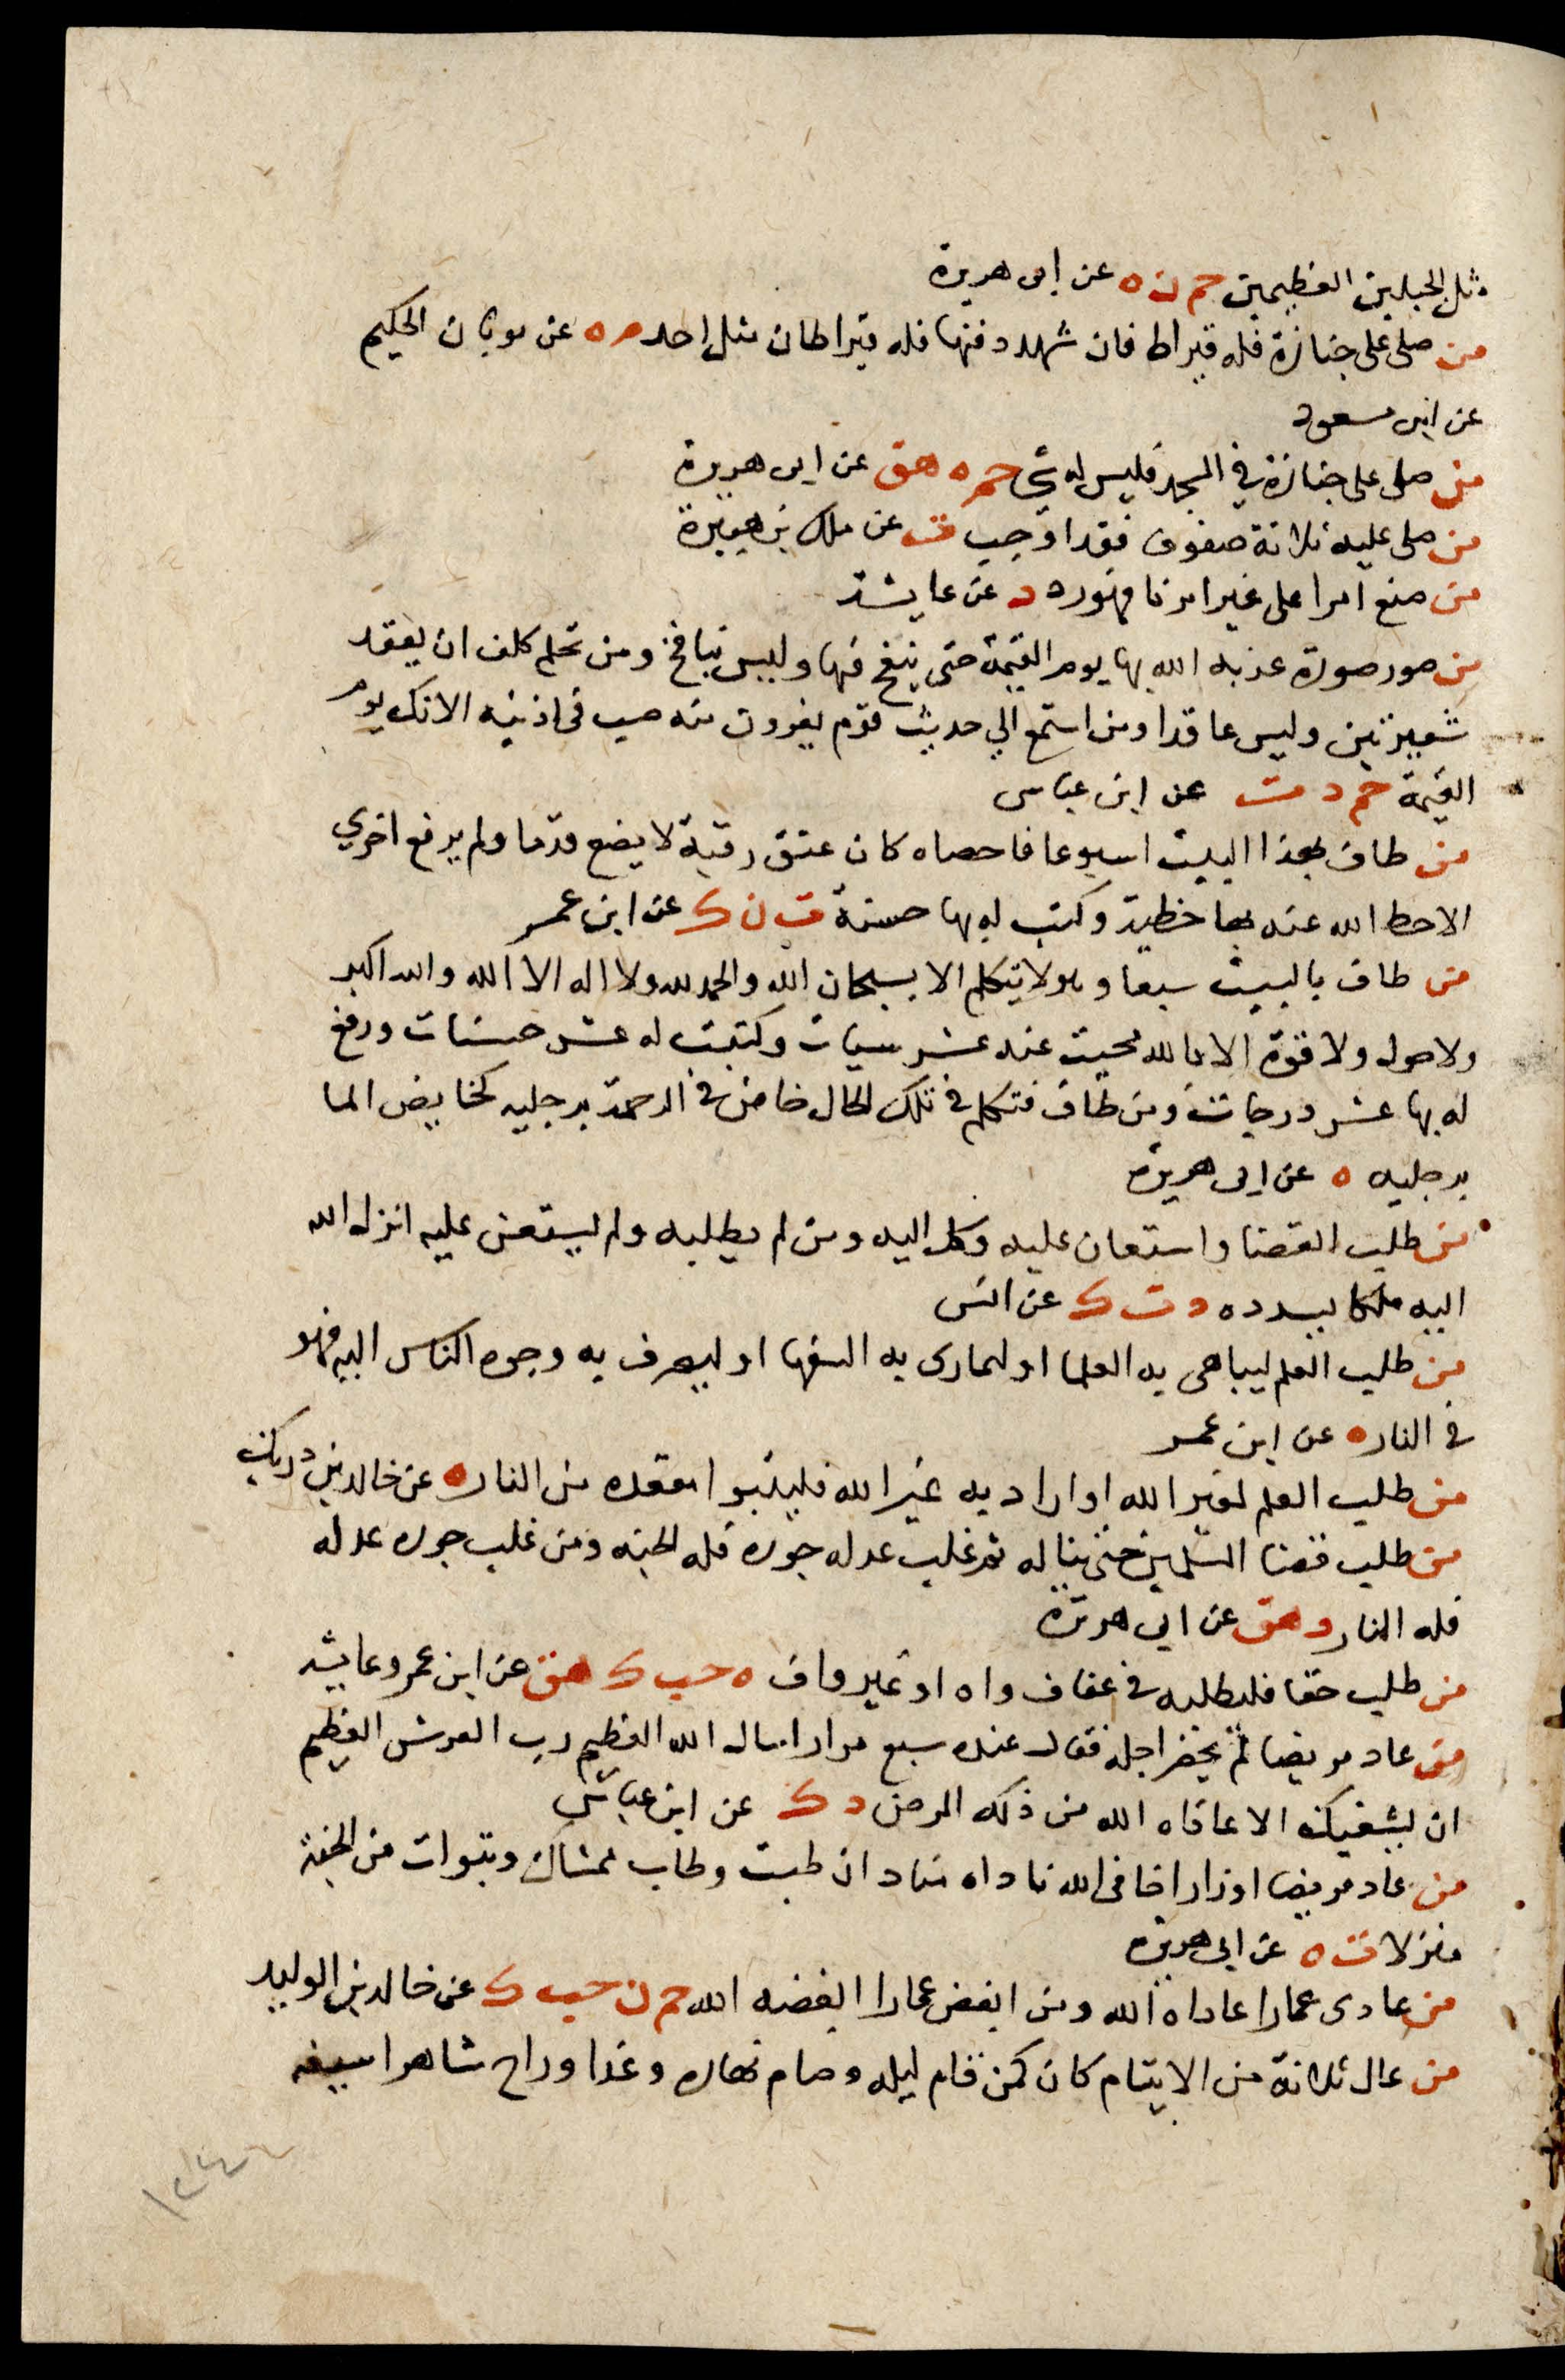 مثل الجبلين العظيمين حم ن ه عن ابى هريرة
من صلى على جنازة فله قيراط فان شهد دفنها فله قيراطان مثل احد م ه عن ثوبان الحكيم
عن ابن مسعود
من صلى على جنازة في المسجد فليس له شي حم ه هق عن ابى هريرة
من صلى عليه ثلاثة صفوف فقد اوجب ت عن ملك بن هبيرة
من صنع امرا على غير امرنا فهو رد د عن عايشة
من صور صورة عذبه الله بها يوم القيمة حتى ينفخ فيها وليس بنافخ ومن تحلم كلف ان يعقد
شعيرتين وليس عاقدا ومن استمع الي حديث قوم يفرون منه صب فى اذنيه الانك يوم
القيمة حم د ت عن ابن عباس
من طاف بهذا البيت اسبوعا فاحصاه كان عتق رقبة لا يضع قدما ولم يرفع اخري
الاحط الله عنه بها خطية وكتب له بها حسنة ت ن ك عن ابن عمر
من طاف بالبيت سبعا ولا يتكلم الا بسبحان الله والحمد لله ولا اله الا الله والله اكبر
ولا حول ولا قوة الا بالله محيت عنه عشر سيات وكتبت له عشر حسنات ورفع
له بها عشر درجات ومن طاف فتكلم في تلك الحال خاض في الرحمة برجليه كخايض الما
برجليه ه عن ابى هريرة
من طلب القضا واستعان عليه وكل اليه ومن لم يطلبه ولم يستعن عليه انزل الله
اليه ملكا يسدده د ت ك عن انس
من طلب العلم ليباهى به العلما او ليمارى به السفها او ليصرف به وجوه الناس اليه فهو
في النار ه عن ابن عمر
من طلب العلم لغير الله او اراد به غير الله فليتبوا مقعده من النار ه عن خالد بن دريك
من طلب قضا المسلمين حتى يناله ثم غلب عدله جوره فله الجنه ومن غلب جوره عدله
فله النار د هق عن ابى هريرة
من طلب حقا فليطلبه في عفاف واه او غير واف ه حب ك هق عن ابن عمر وعايشه
من عاد مريضا لم يحضر اجله فقال عنده سبع مرار اسال الله العظيم رب العرش العظيم
ان يشفيك الا عافاه الله من ذلك المرض د ك عن ابن عباس
من عاد مريضا او زار اخا فى الله ناداه مناد ان طبت وطاب ممشاك وتبوات من الجنة
منزلا ت ه عن ابى هريرة
من عادى عمارا عاداه الله ومن ابغض عمارا ابغضه الله حم ن حب ك عن خالد بن الوليد
من عال ثلاثة من الايتام كان كمن قام ليله وصام نهاره وغدا وراح شاهرا سيفه